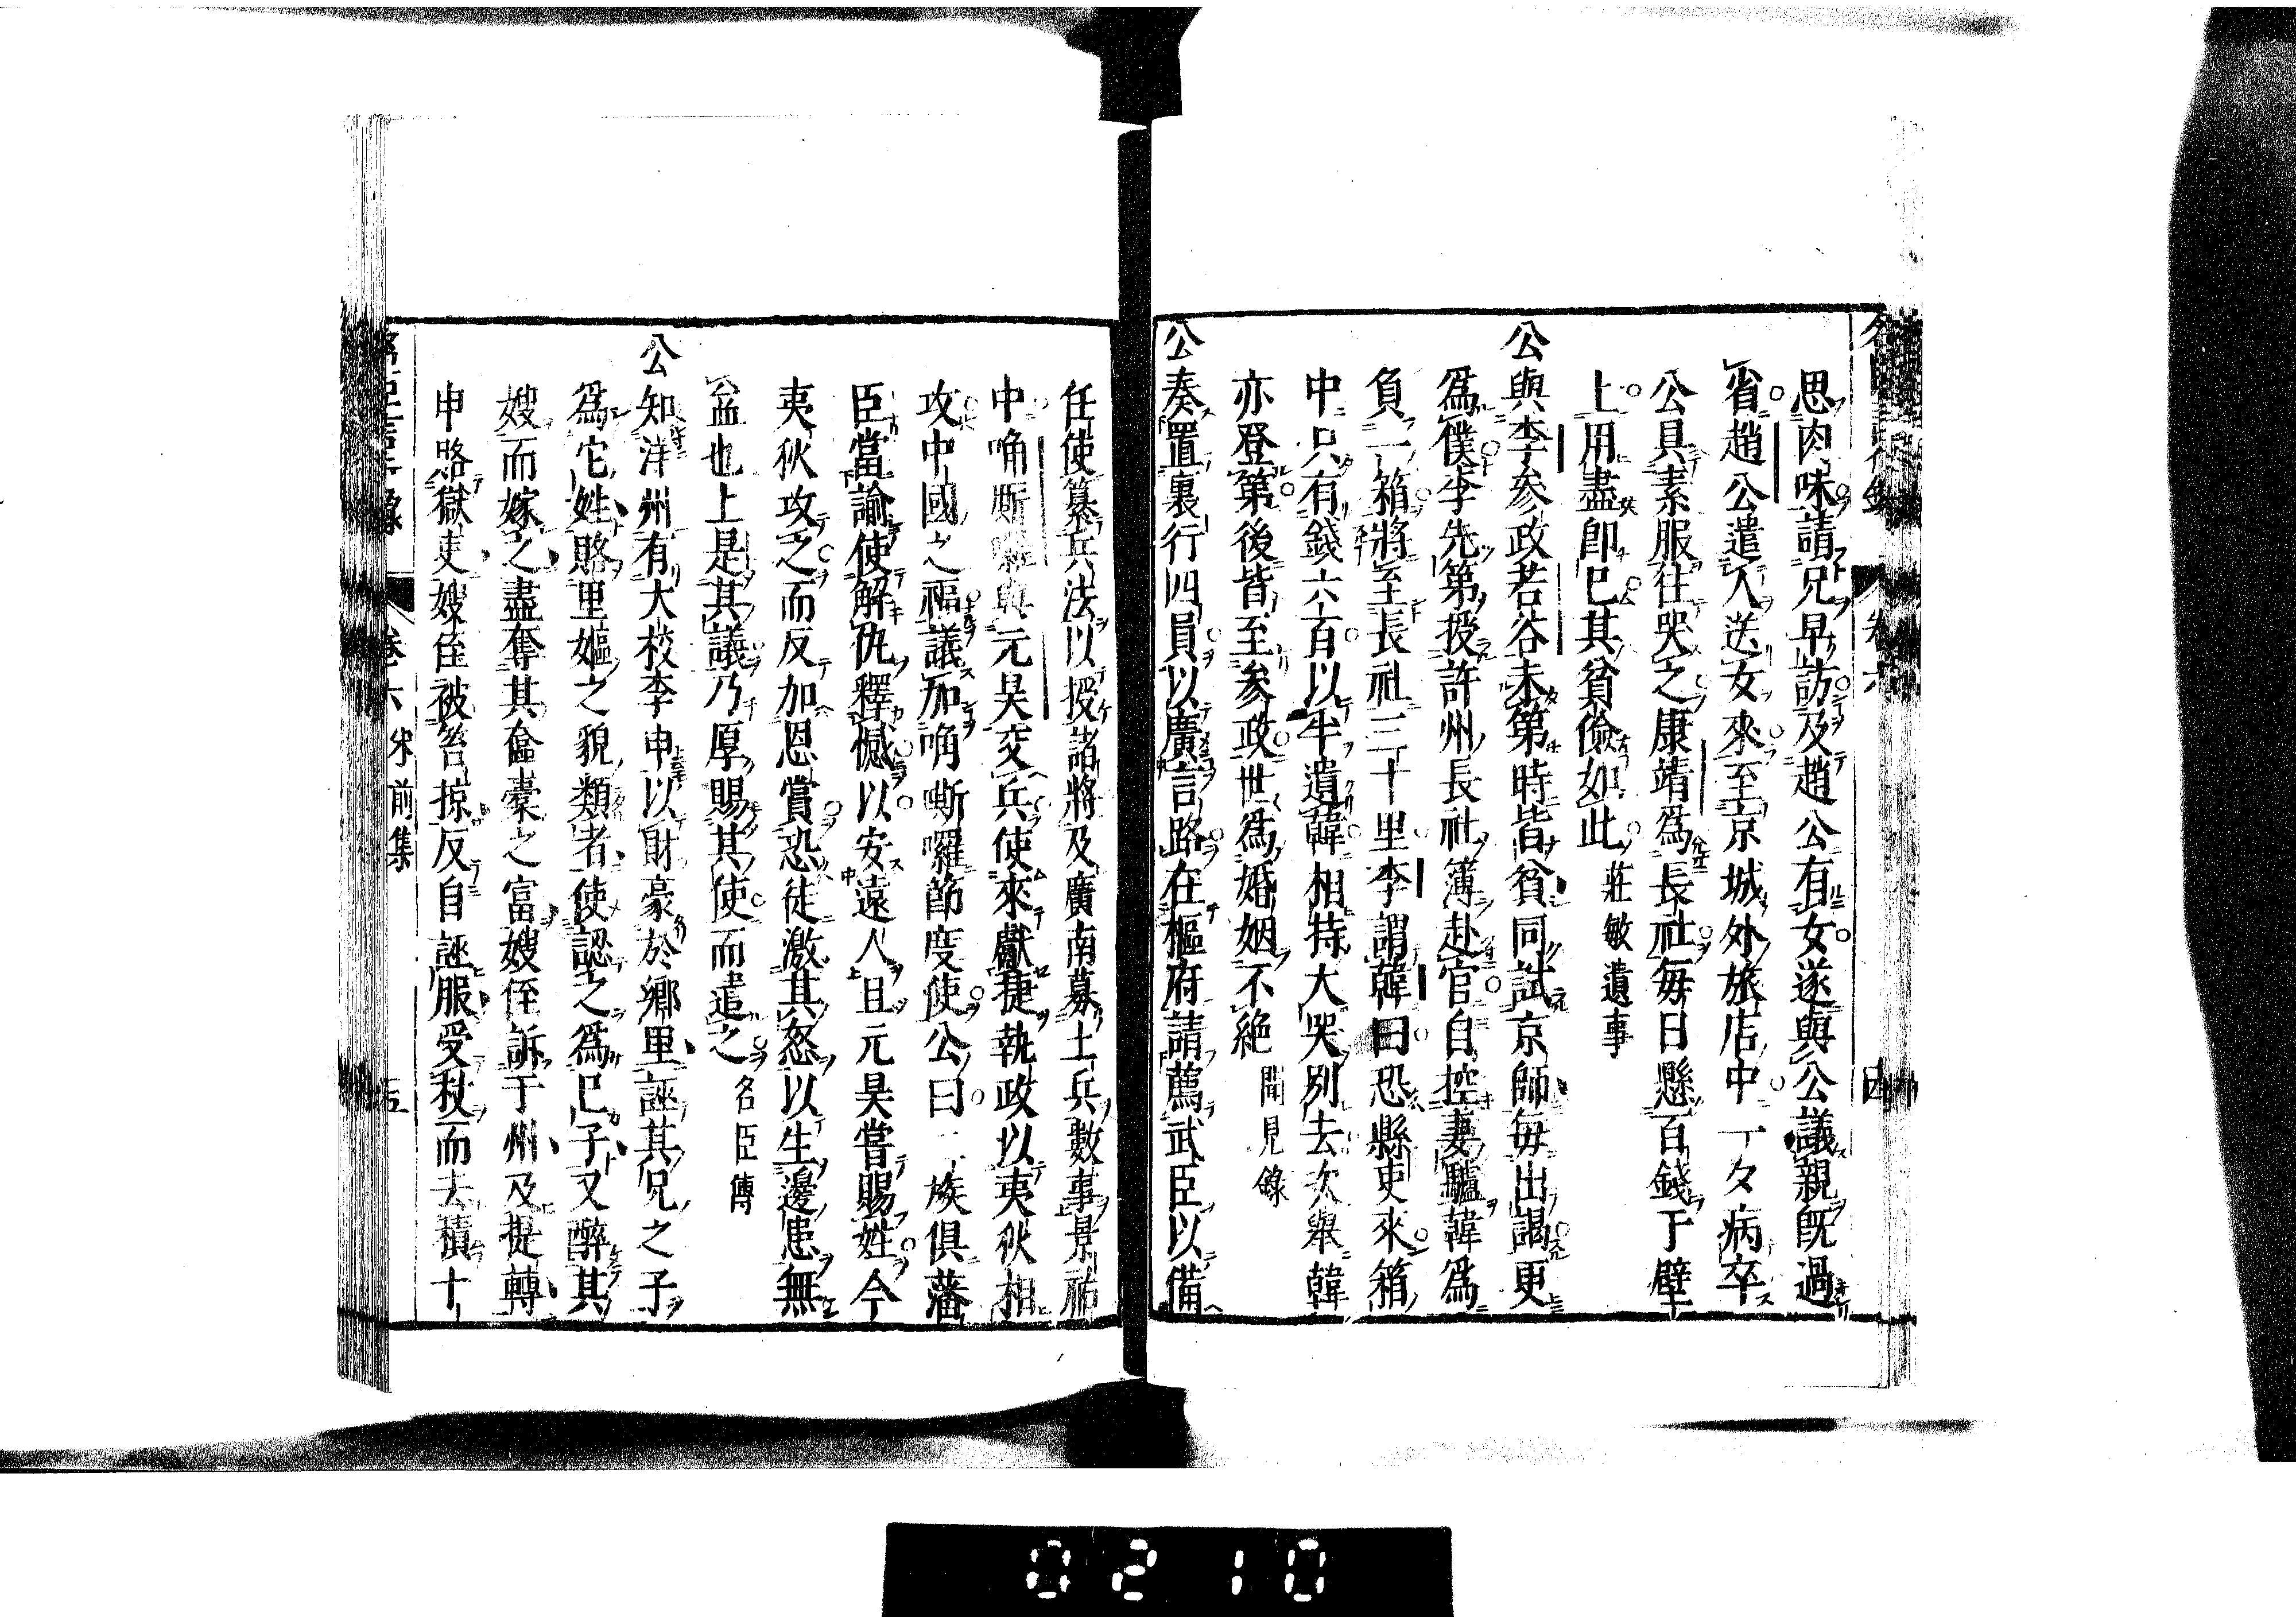 思肉味請兄早訪及趙公有女遂與公議親既過
省趙公遣人送女來至京城外旅店中一夕病卒
公具素服往哭之康靖爲長社每日懸百錢于壁
上用盡卽已其貧儉如此 莊敏遺事
公與李參政若谷未第時皆貧同試京師每出謁更
爲僕李先第授許州長社簿赴官自控妻驢韓爲
負一箱將至長社三十里李謂韓曰恐縣吏來箱
中只有錢六百以半遺韓相持大哭別去次舉韓
亦登第後皆至參政世爲婚姻不絶 聞見錄
公奏置裏行四員以廣言路在樞府請薦武臣以備
任使纂兵法以授諸將及廣南募土兵數事景祐
中唃厮囉與元昊交兵使來獻捷執政以夷狄相
攻中國之福議加唃嘶囉節度使公曰二族俱藩
臣當諭使解仇釋憾以安遠人且元昊嘗賜姓今
夷狄攻之而反加恩賞恐徒激其怒以生邊患無
益也上是其議乃厚賜其使而遣之 名臣傳
公知洋州有大校李申以財豪於鄉里誣其兄之子
爲它姓賂里嫗之貌類者使認之爲己子又醉其
嫂而嫁之盡奪其奩橐之富嫂侄訴于州及提轉
申賂獄吏嫂侄被笞掠反自誣服受杖而去積十
卷六 宋前集 五